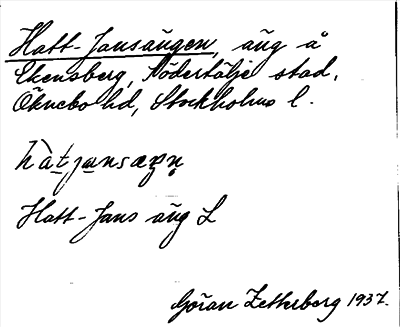 Hatt-Jansängen, äng å
Ekensberg, Södertälje stad,
Öknebo hd, Stockholms l.
Hatt-Jans äng L
Göran Zetterberg 1937.